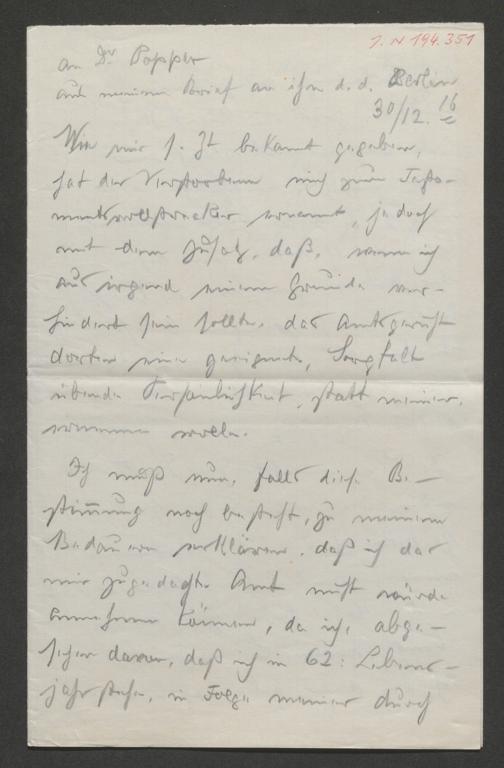 J. N 194.351
an Dr Popper
auf meinen Brief an ihn d. d. Berlin
30/12. 16
Wie mir s. Zt bekannt gegeben,
hat der Verstorbene mich zum Testa-
mentsvollstrecker ernannt, jedoch
mit dem Zusatz, daß, wenn ich
aus irgend einem Grunde ver-
hindert sein sollte, das Amtsgericht
dorten eine geeignete, Sorgfalt
übende Persönlichkeit, statt meiner,
ernennen wolle.
Ich muß nun, falls diese Be-
stimmung noch besteht, zu meinem
Bedauern erklären, daß ich das
mir zugedachte Amt nicht würde
annehmen können, da ich, abge-
sehen davon, daß ich im 62. Lebens-
jahr stehe, in Folge meiner durch